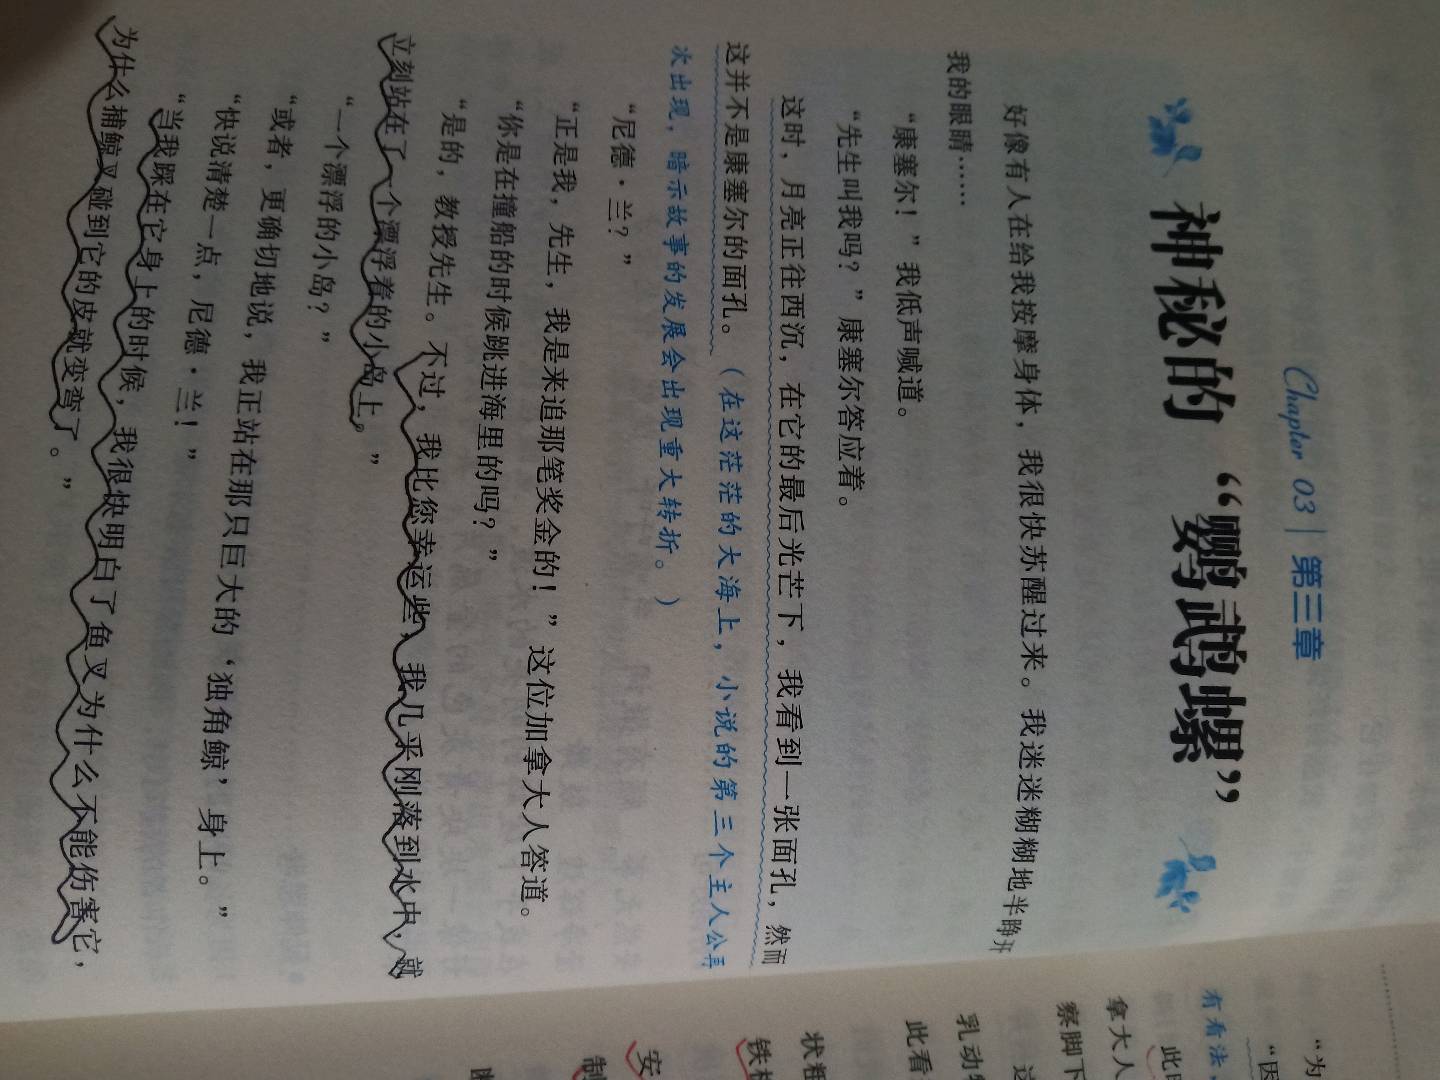 Chapter 03 | 第三章
神秘的“鹦鹉螺”
好像有人在给我按摩身体，我很快苏醒过来。我迷迷糊糊地半睁开
我的眼睛……
“康塞尔！”我低声喊道。
“先生叫我吗？”康塞尔答应着。
这时，月亮正往西沉，在它的最后光芒下，我看到一张面孔，然而
这并不是康塞尔的面孔。（在这茫茫的大海上，小说的第三个主人公再
次出现，暗示故事的发展会出现重大转折。）
“尼德·兰？”
“正是我，先生，我是来追那笔奖金的！”这位加拿大人答道。
“你是在撞船的时候跳进海里的吗？”
“是的，教授先生。不过，我比您幸运些，我几乎刚落到水中，就
立刻站在了一个漂浮着的小岛上。”
“一个漂浮的小岛？”
“或者，更确切地说，我正站在那只巨大的‘独角鲸’身上。”
“快说清楚一点，尼德·兰！”
“当我踩在它身上的时候，我很快明白了鱼叉为什么不能伤害它，
为什么捕鲸叉碰到它的皮就变弯了。”
“为
“因
有看法，
此时
拿大人
察脚下
这
乳动物
此看
状粗
铁板
安
制